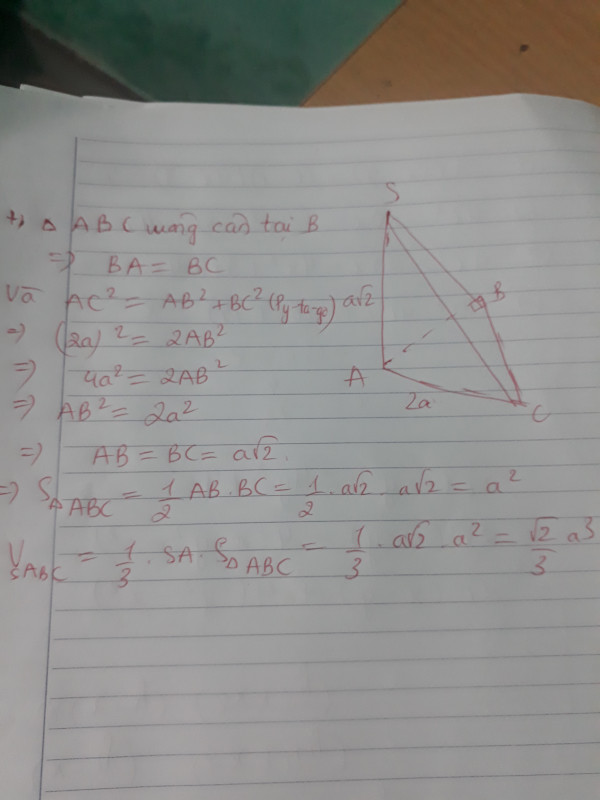 +, Δ ABC vuông cân tại B
=> BA = BC
Và AC² = AB² + BC² (Py-ta-go)
=> (2a)² = 2AB²
=> 4a² = 2AB²
=> AB² = 2a²
=> AB = BC = a√2.
=> S_ΔABC = 1/2 AB.BC = 1/2 . a√2 . a√2 = a²
V_SABC = 1/3 . SA . S_ΔABC = 1/3 . a√2 . a² = √2/3 a³
S
a√2
B
A
2a
C